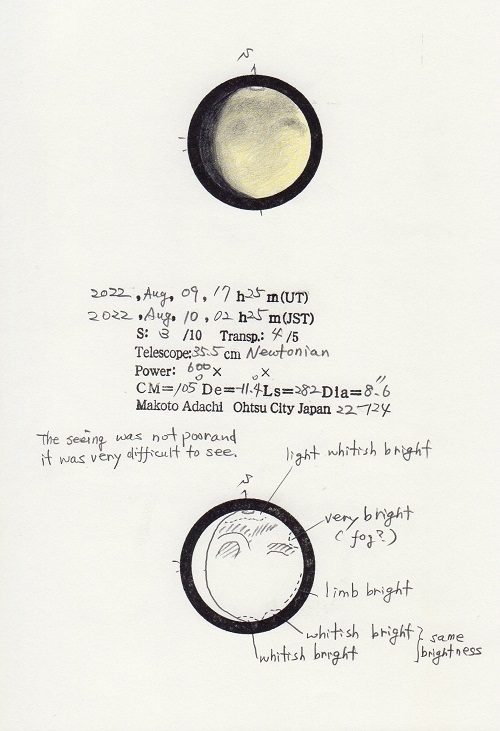 N
2022, Aug, 09, 17 h 25 m (UT)
2022, Aug, 10, 02 h 25 m (JST)
S: 3 /10 Transp.: 4 /5
Telescope: 35.5 cm Newtonian
Power: 600 × ×
CM=105° De=-11.4° Ls=282 Dia=8.6"
Makoto Adachi Ohtsu City Japan 22-724
The seeing was not poorand
it was very difficult to see.
light whitish bright
N
very bright
(fog?)
limb bright
whitish bright } same
whitish bright } brightness